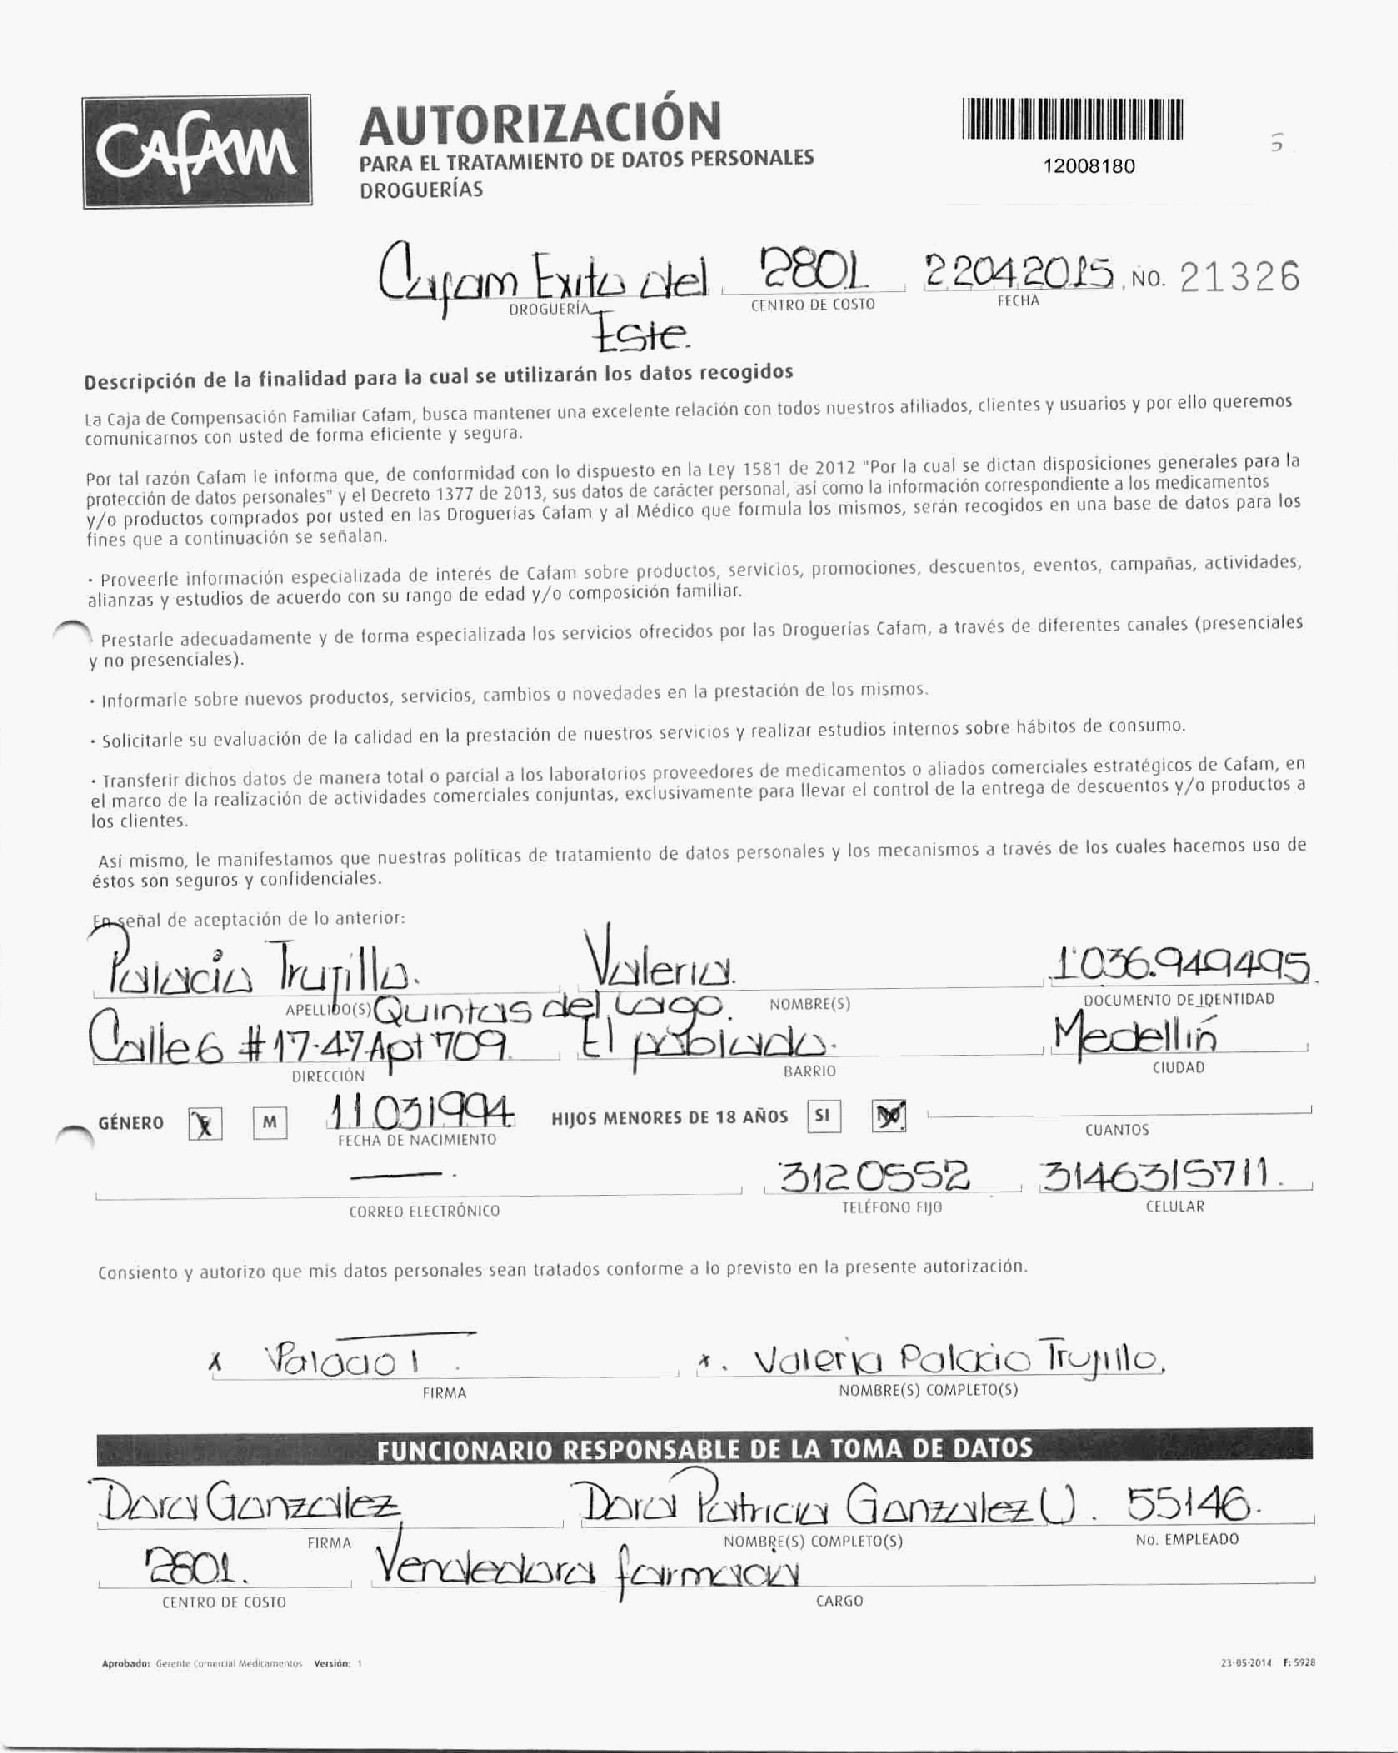 CAFAM
AUTORIZACIÓN
PARA EL TRATAMIENTO DE DATOS PERSONALES
DROGUERÍAS
12008180
5
Cafam Exito del 2801 22042015 NO. 21326
DROGUERÍA CENTRO DE COSTO FECHA
Este.
Descripción de la finalidad para la cual se utilizarán los datos recogidos
La Caja de Compensación Familiar Cafam, busca mantener una excelente relación con todos nuestros afiliados, clientes y usuarios y por ello queremos
comunicarnos con usted de forma eficiente y segura.
Por tal razón Cafam le informa que, de conformidad con lo dispuesto en la Ley 1581 de 2012 "Por la cual se dictan disposiciones generales para la
protección de datos personales" y el Decreto 1377 de 2013, sus datos de carácter personal, así como la información correspondiente a los medicamentos
y/o productos comprados por usted en las Droguerías Cafam y al Médico que formula los mismos, serán recogidos en una base de datos para los
fines que a continuación se señalan.
· Proveerle información especializada de interés de Cafam sobre productos, servicios, promociones, descuentos, eventos, campañas, actividades,
alianzas y estudios de acuerdo con su rango de edad y/o composición familiar.
· Prestarle adecuadamente y de forma especializada los servicios ofrecidos por las Droguerías Cafam, a través de diferentes canales (presenciales
y no presenciales).
· Informarle sobre nuevos productos, servicios, cambios o novedades en la prestación de los mismos.
· Solicitarle su evaluación de la calidad en la prestación de nuestros servicios y realizar estudios internos sobre hábitos de consumo.
· Transferir dichos datos de manera total o parcial a los laboratorios proveedores de medicamentos o aliados comerciales estratégicos de Cafam, en
el marco de la realización de actividades comerciales conjuntas, exclusivamente para llevar el control de la entrega de descuentos y/o productos a
los clientes.
Así mismo, le manifestamos que nuestras políticas de tratamiento de datos personales y los mecanismos a través de los cuales hacemos uso de
éstos son seguros y confidenciales.
En señal de aceptación de lo anterior:
Palacio Trujillo. Valeria. 1'036.949495.
APELLIDO(S) NOMBRE(S) DOCUMENTO DE IDENTIDAD
Quintas del Lago.
Calle 6 # 17-47 Apt 709. El poblado. Medellín
DIRECCIÓN BARRIO CIUDAD
GÉNERO X M 11031994 HIJOS MENORES DE 18 AÑOS SI
FECHA DE NACIMIENTO CUANTOS
3120552 3146315711.
CORREO ELECTRÓNICO TELÉFONO FIJO CELULAR
Consiento y autorizo que mis datos personales sean tratados conforme a lo previsto en la presente autorización.
x Palacio T. x. Valeria Palacio Trujillo.
FIRMA NOMBRE(S) COMPLETO(S)
FUNCIONARIO RESPONSABLE DE LA TOMA DE DATOS
Dora Gonzalez Dora Patricia Gonzalez U. 55146.
FIRMA NOMBRE(S) COMPLETO(S) No. EMPLEADO
2801. Vendedora farmacia
CENTRO DE COSTO CARGO
Aprobado: Gerente Comercial Medicamentos Versión: 1 23-05-2014 F: 5928